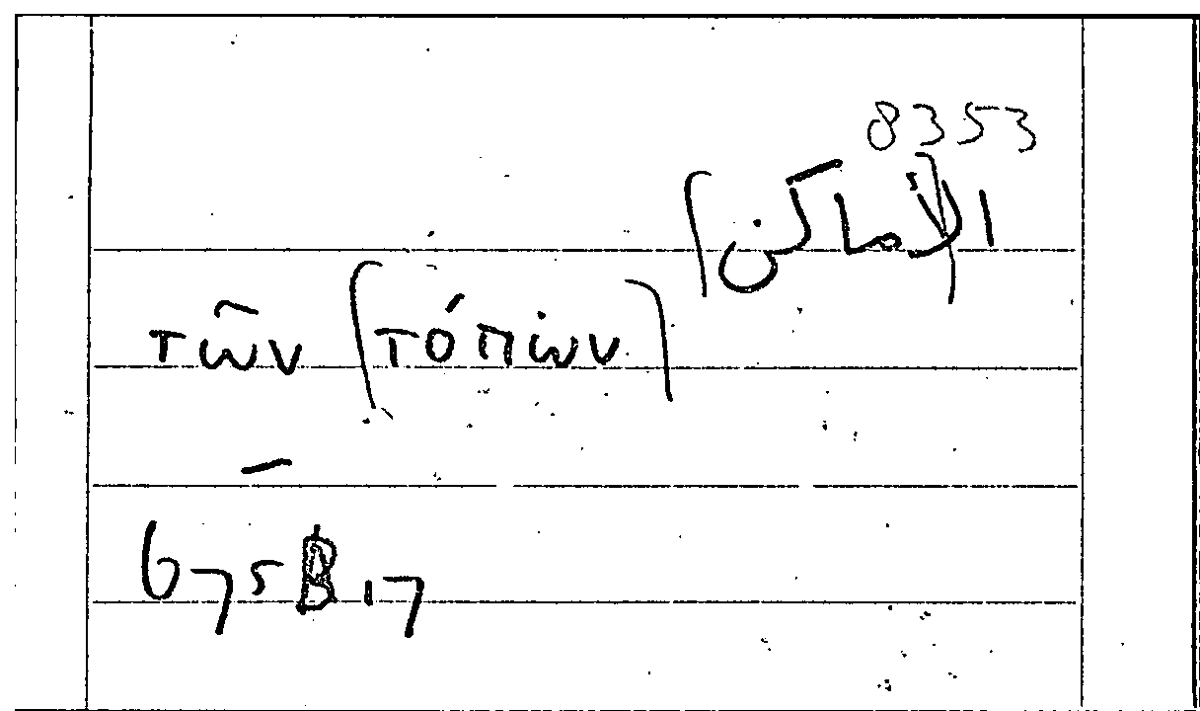 8353
[الأماكن]
τῶν [τόπων]
—
675B17